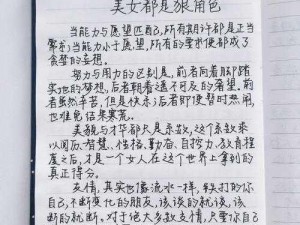 美女都是狠角色
当能力与愿望匹配,所有期许都是正当
需求;当能力小于愿望,所有的需求便都成了
贪婪的妄想。
努力与用力的区别是,前者向着脚踏
实地的梦想,后者朝着遥不可及的奢望。前
者虽然辛苦,但是快乐;后者即使暂时热闹,
也难免结果寒荒。
美貌与才华都只是系数,这个系数乘
以阅历、智慧、性格、勤奋、自控力、教育程
度之后,才是一个女人在这个世界上拿到的
真正得分。
友情,其实也像流水一样,铁打的你自
己,不断变化的朋友,该谈的就谈,该
断的就断。对于绝大多数友情,只要你自己